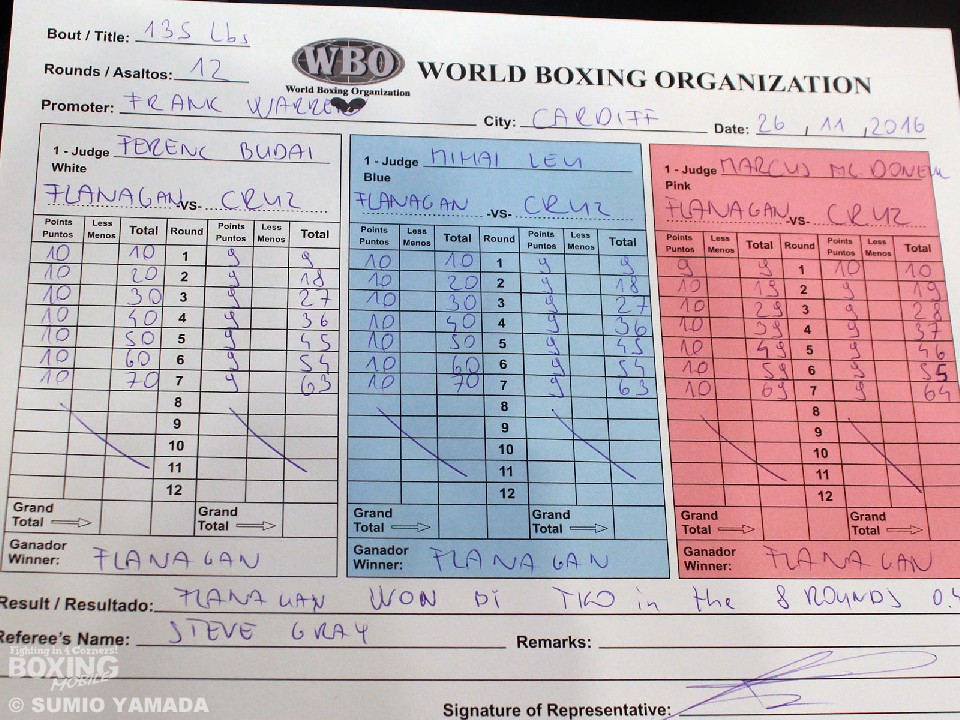 Bout / Title: 135 Lbs
WBO
World Boxing Organization
WORLD BOXING ORGANIZATION
Rounds / Asaltos: 12
Promoter: FRANK WARREN City: CARDIFF Date: 26, 11, 2016
1 - Judge FERENC BUDAI
White
FLANAGAN VS- CRUZ
Points Puntos Less Menos Total Round Points Puntos Less Menos Total
10 10 1 9 9
10 20 2 9 18
10 30 3 9 27
10 40 4 9 36
10 50 5 9 45
10 60 6 9 54
10 70 7 9 63
8
9
10
11
12
Grand Total Grand Total
Ganador
Winner: FLANAGAN
1 - Judge MIHAI LEU
Blue
FLANAGAN -VS- CRUZ
Points Puntos Less Menos Total Round Points Puntos Less Menos Total
10 10 1 9 9
10 20 2 9 18
10 30 3 9 27
10 40 4 9 36
10 50 5 9 45
10 60 6 9 54
10 70 7 9 63
8
9
10
11
12
Grand Total Grand Total
Ganador
Winner: FLANAGAN
1 - Judge MARCUS MC DONELL
Pink
FLANAGAN -VS- CRUZ
Points Puntos Less Menos Total Round Points Puntos Less Menos Total
9 9 1 10 10
10 19 2 9 19
10 29 3 9 28
10 39 4 9 37
10 49 5 9 46
10 59 6 9 55
10 69 7 9 64
8
9
10
11
12
Grand Total Grand Total
Ganador
Winner: FLANAGAN
Result / Resultado: FLANAGAN WON DI TKO in the 8 ROUNDS
Referee's Name: STEVE GRAY Remarks:
Signature of Representative:
Fighting in 4 Corners!
BOXING
MOBILE
© SUMIO YAMADA